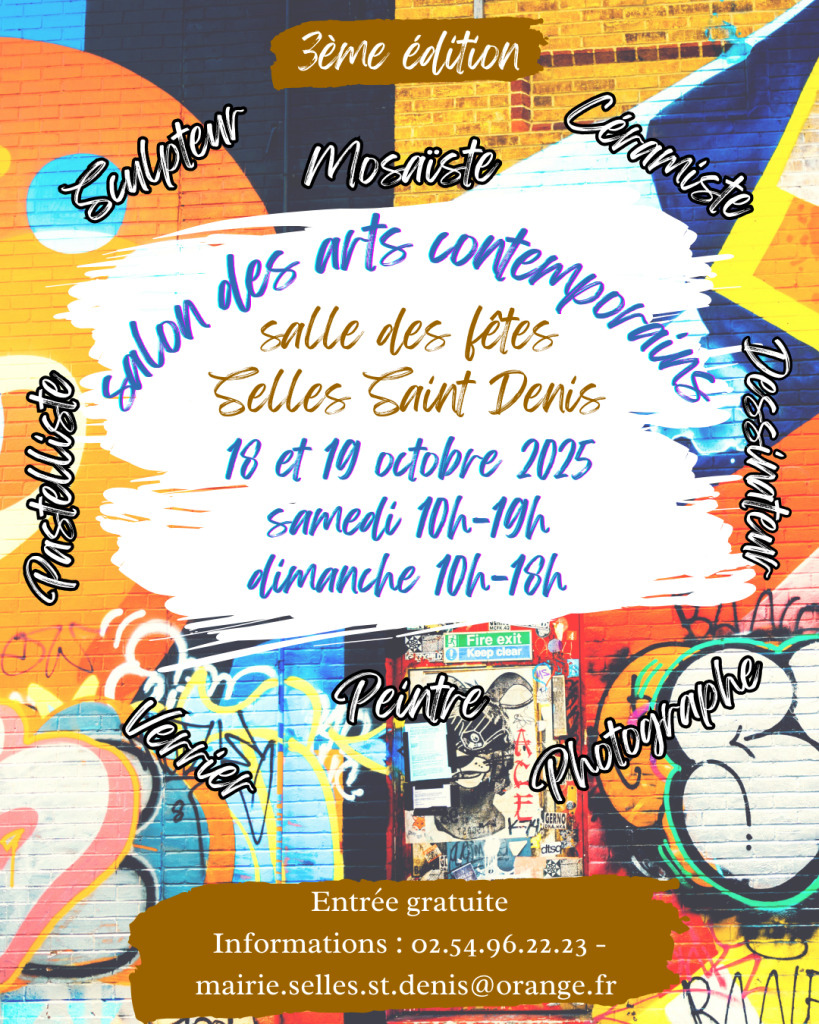 3ème édition
Sculpteur
Mosaïste
Céramiste
salon des arts contemporains
salle des fêtes
Selles Saint Denis
18 et 19 octobre 2025
samedi 10h-19h
dimanche 10h-18h
Pastelliste
Dessinateur
Fire exit
Keep clear
Peintre
Verrier
Photographe
K-74
GERNO
dtsg
Entrée gratuite
Informations : 02.54.96.22.23 -
mairie.selles.st.denis@orange.fr